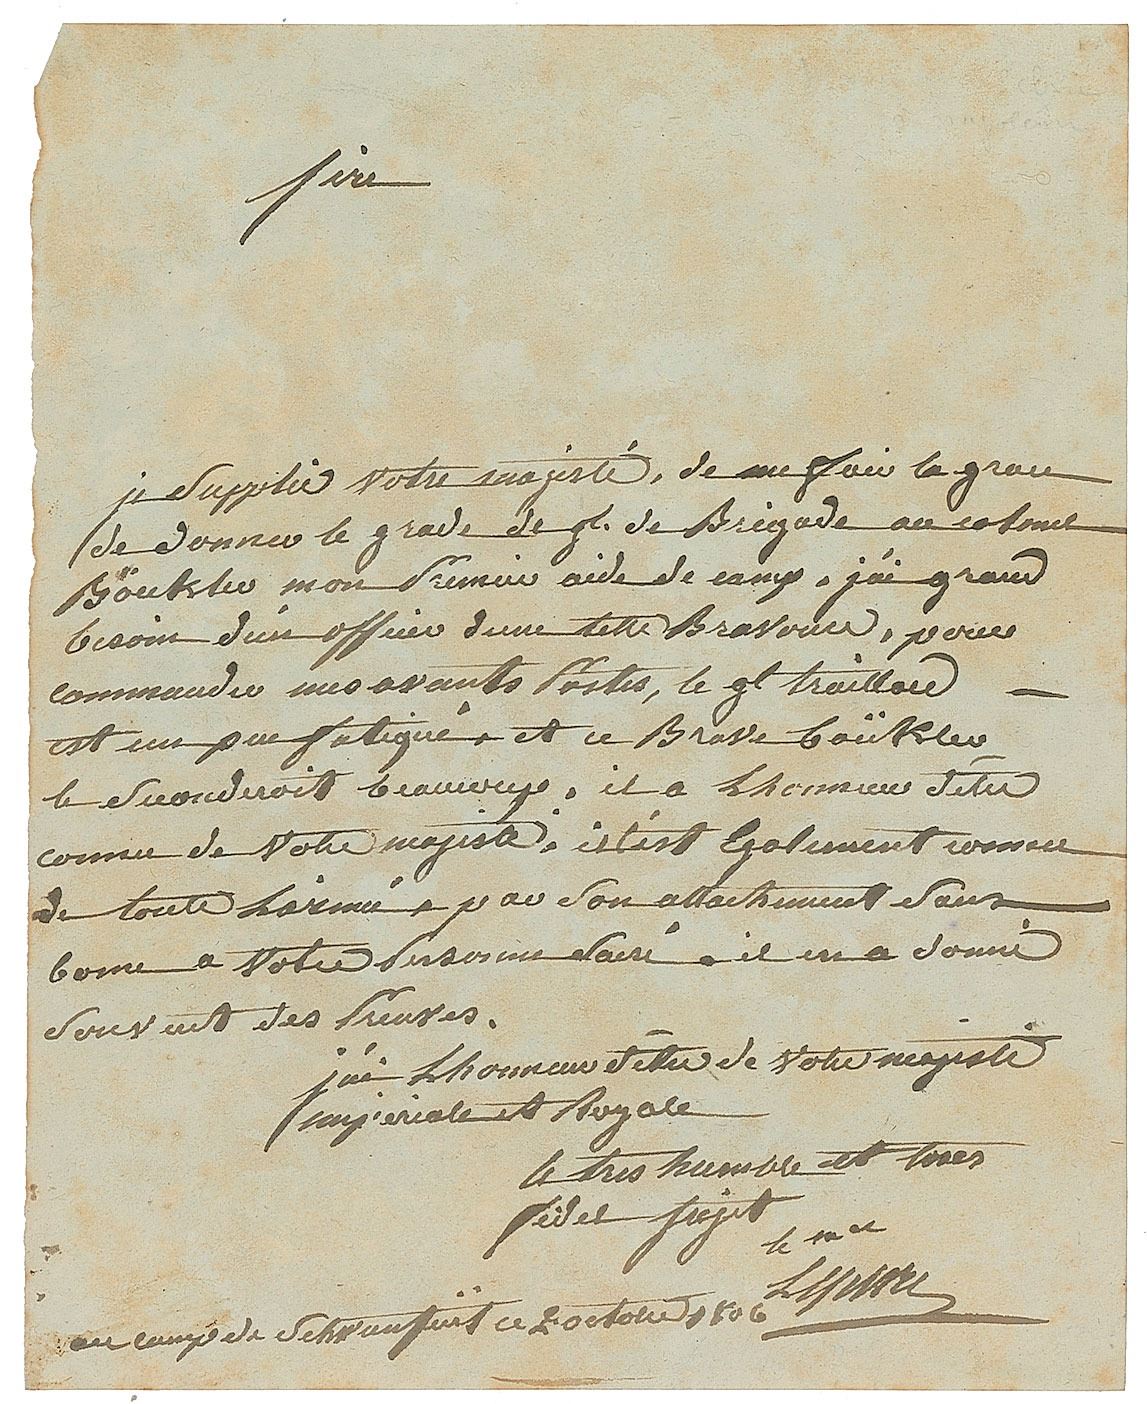 Sire
je Supplie Votre majesté, de me faire la grace
de donner le grade de gl. de Brigade au colonel
Böukler mon Premier aide de camp, j'ai grand
besoin d'un officier d'une telle Bravoure, pour
commander mes avants Postes, le gl traillard
est un peu fatigué, et ce Brave boükler
le Seconderoit beaucoup, il a Lhonneur d'être
connu de Votre majesté, il est Egalement connu
de toute L'armé, par Son attachement Sans
borne a Votre Personne Sacré, il en a donné
Souvent des Preuves.
j'ai Lhonneur d'être de Votre majesté
impériale et Royale
le tres humble et tres
fidel sujet
le mal
Lefebvre
au camp de ce 2 octobre 1806